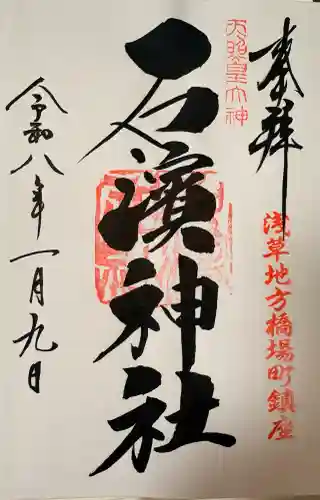 奉拝
天照皇大神
浅草地方橋場町鎮座
石濱神社
令和八年一月九日